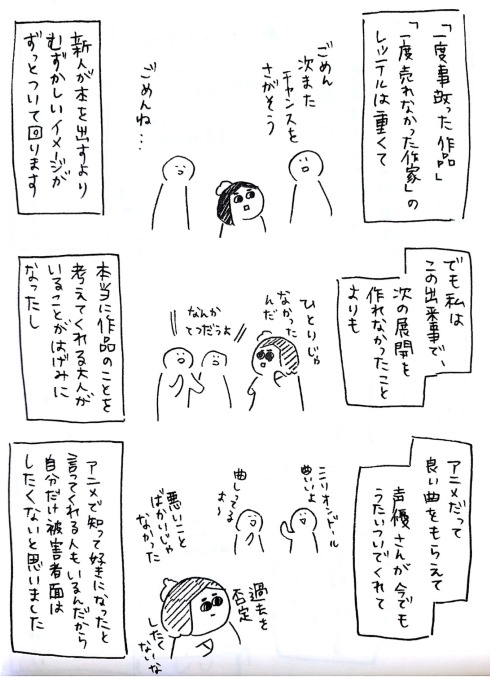 「一度事故った作品」
「一度売れなかった作家」の
レッテルは重くて
ごめん
次また
チャンスを
さがそう
ごめんね…
新人が本を出すより
むずかしいイメージが
ずっとついて回ります
でも私は
この出来事で、
次の展開を
作れなかったこと
よりも
ひとりじゃ
なかった
んだ
なんか
てつだうよ
本当に作品のことを
考えてくれる大人が
いることがはげみに
なったし
アニメだって
良い曲をもらえて
声優さんが今でも
うたいついでくれて
ミリオンドール
曲いいよ
曲しってるよ〜
悪いこと
ばかりじゃ
なかった
過去を
否定
したく
ないな
アニメで知って好きになったと
言ってくれる人もいるんだから
自分だけ被害者面は
したくないと思いました